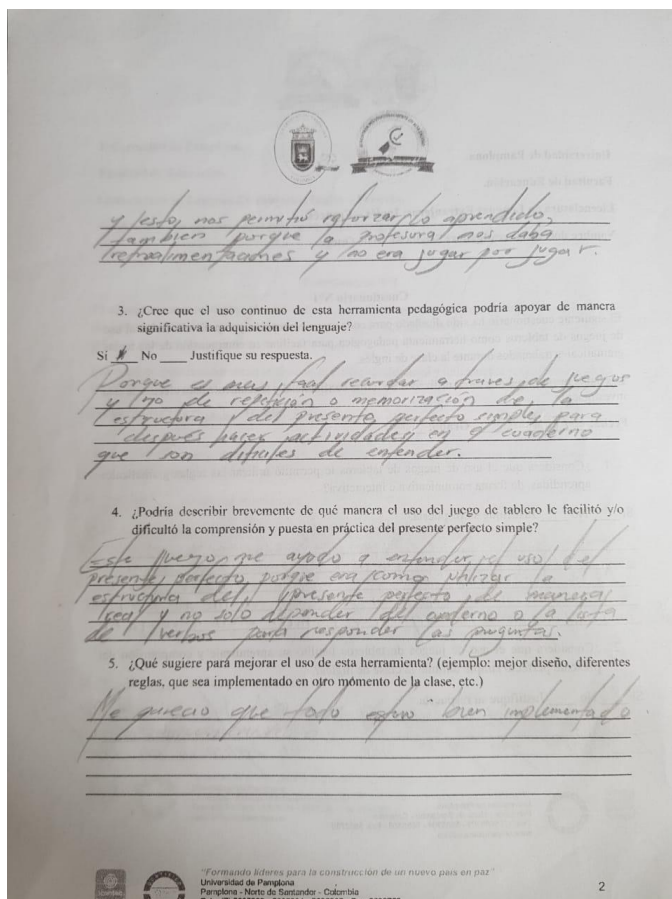 y esto, nos permitió reforzar lo aprendido,
tambien porque la profesora nos daba
retroalimentaciones y no era jugar por jugar.
3. ¿Cree que el uso continuo de esta herramienta pedagógica podría apoyar de manera
significativa la adquisición del lenguaje?
Sí X No ____ Justifique su respuesta.
Porque es mas facil recordar a traves de juegos
y no de repetición o memorización de la
estructura del presente perfecto simple, para
después hacer actividades en el cuaderno
que son dificiles de entender.
4. ¿Podría describir brevemente de qué manera el uso del juego de tablero le facilitó y/o
dificultó la comprensión y puesta en práctica del presente perfecto simple?
Este juego, me ayudo a entender el uso del
presente perfecto porque era como utilizar la
estructura del presente perfecto de manera
real y no solo depender del cuaderno o la lista
de verbos para responder las preguntas.
5. ¿Qué sugiere para mejorar el uso de esta herramienta? (ejemplo: mejor diseño, diferentes
reglas, que sea implementado en otro momento de la clase, etc.)
Me parecio que todo estuvo bien implementado
"Formando líderes para la construcción de un nuevo país en paz"
Universidad de Pamplona
Pamplona - Norte de Santander - Colombia
2